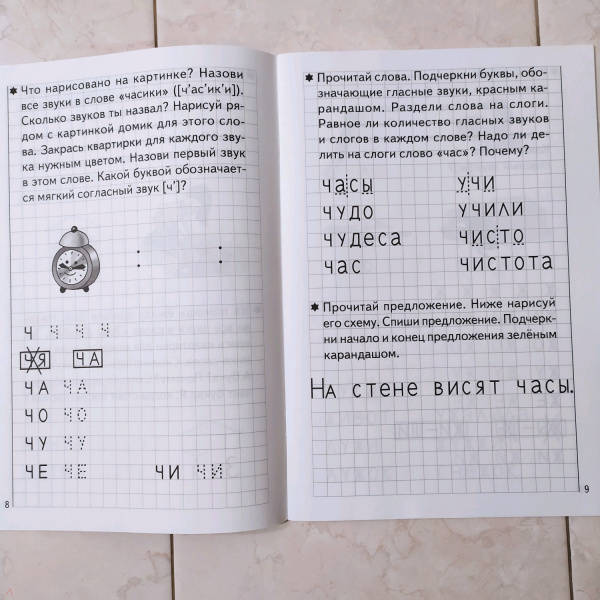 ✷ Что нарисовано на картинке? Назови
все звуки в слове «часики» ([ч'ас'ик'и]).
Сколько звуков ты назвал? Нарисуй ря-
дом с картинкой домик для этого сло-
ва. Закрась квартирки для каждого зву-
ка нужным цветом. Назови первый звук
в этом слове. Какой буквой обозначает-
ся мягкий согласный звук [ч']?
: :
Ч Ч Ч Ч
ЧЯ ЧА
ЧА ЧА
ЧО ЧО
ЧУ ЧУ
ЧЕ ЧЕ ЧИ ЧИ
8
✷ Прочитай слова. Подчеркни буквы, обо-
значающие гласные звуки, красным ка-
рандашом. Раздели слова на слоги.
Равное ли количество гласных звуков
и слогов в каждом слове? Надо ли де-
лить на слоги слово «час»? Почему?
часы учи
чудо учили
чудеса чисто
час чистота
✷ Прочитай предложение. Ниже нарисуй
его схему. Спиши предложение. Подчерк-
ни начало и конец предложения зелёным
карандашом.
На стене висят часы.
9